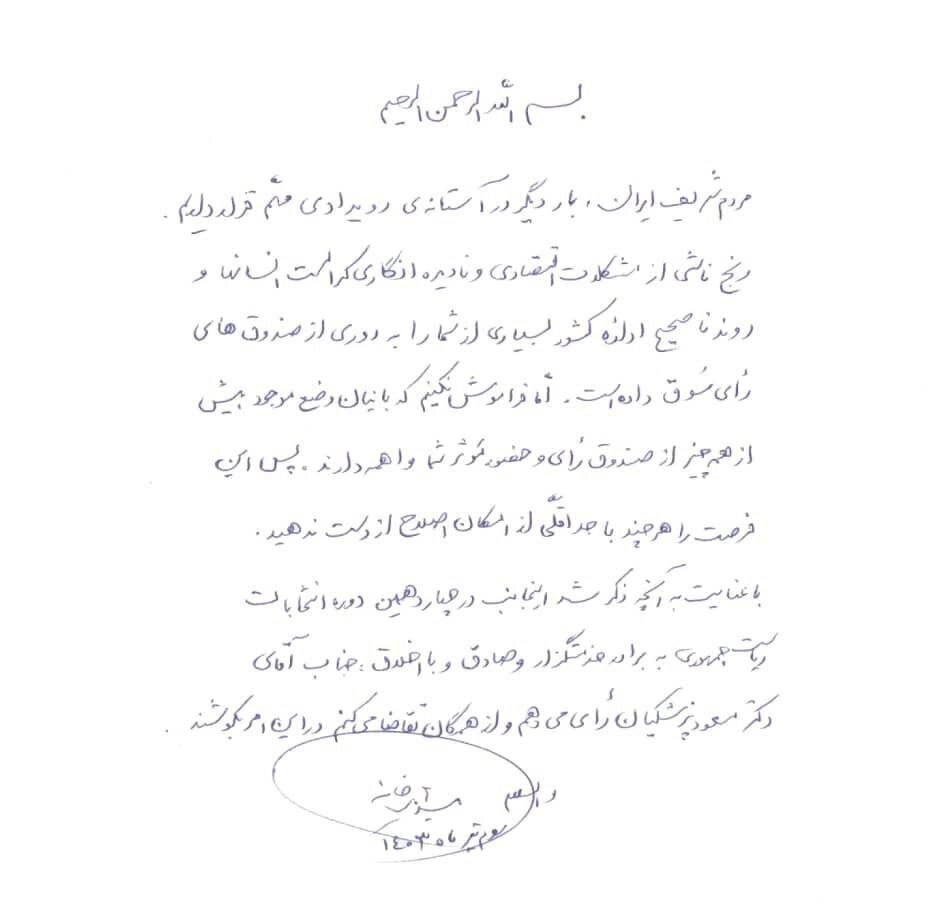 بسم الله الرحمن الرحیم
مردم شریف ایران، بار دیگر در آستانه‌ی رویدادی مهّم قرار داریم.
رنج ناشی از مشکلات اقتصادی و نادیده انگاری کرامت انسانها و
روند ناصحیح اداره کشور بسیاری از شما را به دوری از صندوق های
رأی سُوق داده است. امّا فراموش نکنیم که بانیان وضع موجود بیش
از همه چیز از صندوق رأی و حضور مُوثر شما واهمه دارند. پس این
فرصت را هرچند با حداقلّی از امکان اصلاح از دست ندهید.
با عنایت به آنچه ذکر شد اینجانب در چهاردهمین دوره انتخابات
ریاست جمهوری به برادر خدمتگزار و صادق و با اخلاق، جناب آقای
دکتر مسعود پزشکیان رأی می دهم و از همگان تقاضا می کنم در این امر بکوشند.
والسلام
تیر ماه ۱۴۰۳